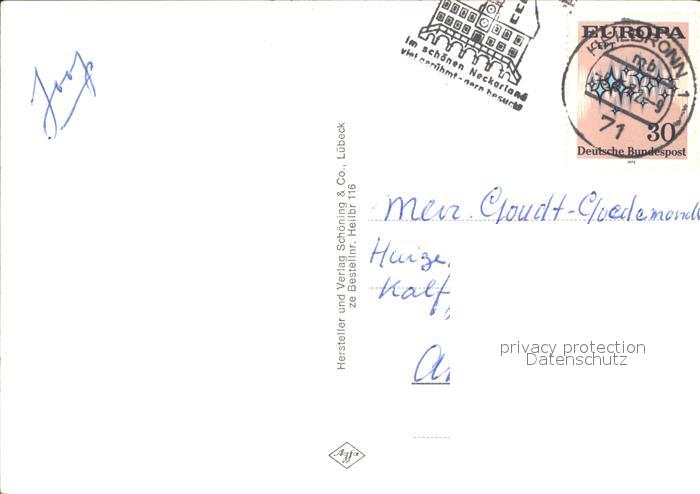 Im schönen Neckarland
viel gerühmt - gern besucht
EUROPA
CEPT
HEILBRONN 1
mb
71
30
Deutsche Bundespost
1972
Joop
Mevr. Goudt-Goedemondt
Huize
Kalf
A
privacy protection
Datenschutz
Hersteller und Verlag Schöning & Co., Lübeck
ze Bestellnr. Heilbr 116
Agfa